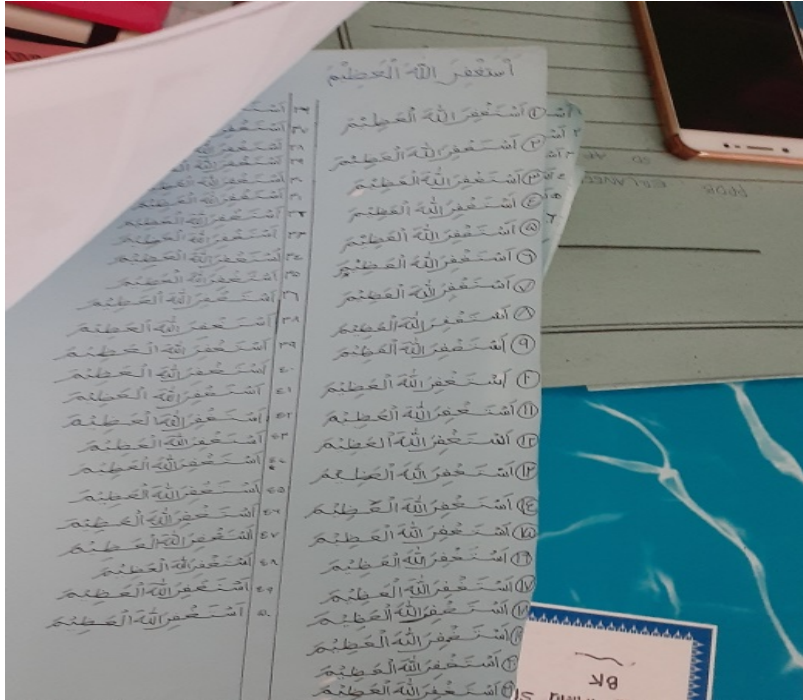 أَسْتَغْفِرَ اللهَ الْعَظِيْمَ
١ أَسْتَغْفِرَ اللهَ الْعَظِيْمَ
٢ أَسْتَغْفِرَ اللهَ الْعَظِيْمَ
٣ أَسْتَغْفِرَ اللهَ الْعَظِيْمَ
٤ أَسْتَغْفِرَ اللهَ الْعَظِيْمَ
٥ أَسْتَغْفِرَ اللهَ الْعَظِيْمَ
٦ أَسْتَغْفِرَ اللهَ الْعَظِيْمَ
٧ أَسْتَغْفِرَ اللهَ الْعَظِيْمَ
٨ أَسْتَغْفِرَ اللهَ الْعَظِيْمَ
٩ أَسْتَغْفِرَ اللهَ الْعَظِيْمَ
١٠ أَسْتَغْفِرَ اللهَ الْعَظِيْمَ
١١ أَسْتَغْفِرَ اللهَ الْعَظِيْمَ
١٢ أَسْتَغْفِرَ اللهَ الْعَظِيْمَ
١٣ أَسْتَغْفِرَ اللهَ الْعَظِيْمَ
١٤ أَسْتَغْفِرَ اللهَ الْعَظِيْمَ
١٥ أَسْتَغْفِرَ اللهَ الْعَظِيْمَ
١٦ أَسْتَغْفِرَ اللهَ الْعَظِيْمَ
١٧ أَسْتَغْفِرَ اللهَ الْعَظِيْمَ
١٨ أَسْتَغْفِرَ اللهَ الْعَظِيْمَ
أَسْتَغْفِرَ اللهَ الْعَظِيْمَ
أَسْتَغْفِرَ اللهَ الْعَظِيْمَ
أَسْتَغْفِرَ اللهَ الْعَظِيْمَ
٢٧ أَسْتَغْفِرَ
٢٨ أَسْتَغْفِرَ اللهَ
٢٩ أَسْتَغْفِرَ اللهَ
٣٠ أَسْتَغْفِرَ اللهَ
٣١ أَسْتَغْفِرَ اللهَ
٣٢ أَسْتَغْفِرَ اللهَ الْعَظِيْمَ
٣٣ أَسْتَغْفِرَ اللهَ الْعَظِيْمَ
٣٤ أَسْتَغْفِرَ اللهَ الْعَظِيْمَ
٣٥ أَسْتَغْفِرَ اللهَ الْعَظِيْمَ
٣٦ أَسْتَغْفِرَ اللهَ الْعَظِيْمَ
٣٨ أَسْتَغْفِرَ اللهَ الْعَظِيْمَ
٣٩ أَسْتَغْفِرَ اللهَ الْعَظِيْمَ
٤٠ أَسْتَغْفِرَ اللهَ الْعَظِيْمَ
٤١ أَسْتَغْفِرَ اللهَ الْعَظِيْمَ
٤٢ أَسْتَغْفِرَ اللهَ الْعَظِيْمَ
٤٣ أَسْتَغْفِرَ اللهَ الْعَظِيْمَ
٤٤ أَسْتَغْفِرَ اللهَ الْعَظِيْمَ
٤٥ أَسْتَغْفِرَ اللهَ الْعَظِيْمَ
٤٦ أَسْتَغْفِرَ اللهَ الْعَظِيْمَ
٤٧ أَسْتَغْفِرَ اللهَ الْعَظِيْمَ
٤٨ أَسْتَغْفِرَ اللهَ الْعَظِيْمَ
٤٩ أَسْتَغْفِرَ اللهَ الْعَظِيْمَ
٥٠ أَسْتَغْفِرَ اللهَ الْعَظِيْمَ
BK